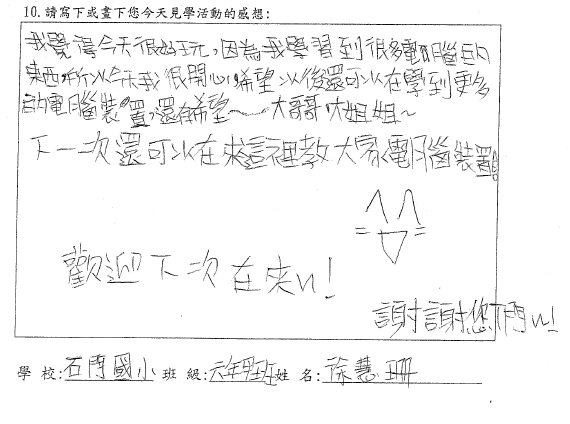 10. 請寫下或畫下您今天見學活動的感想:
我覺得今天很好玩,因為我學習到很多電腦的
東西,所以今天我很開心,希望以後還可以在學到更多
的電腦裝置,還有希望~大哥哥、大姐姐~
下一次還可以在來這裡教大家電腦裝置。
歡迎下次在來ㄟ!
謝謝您們ㄟ!
學校:石門國小班級:六年 班姓名:徐慧珊